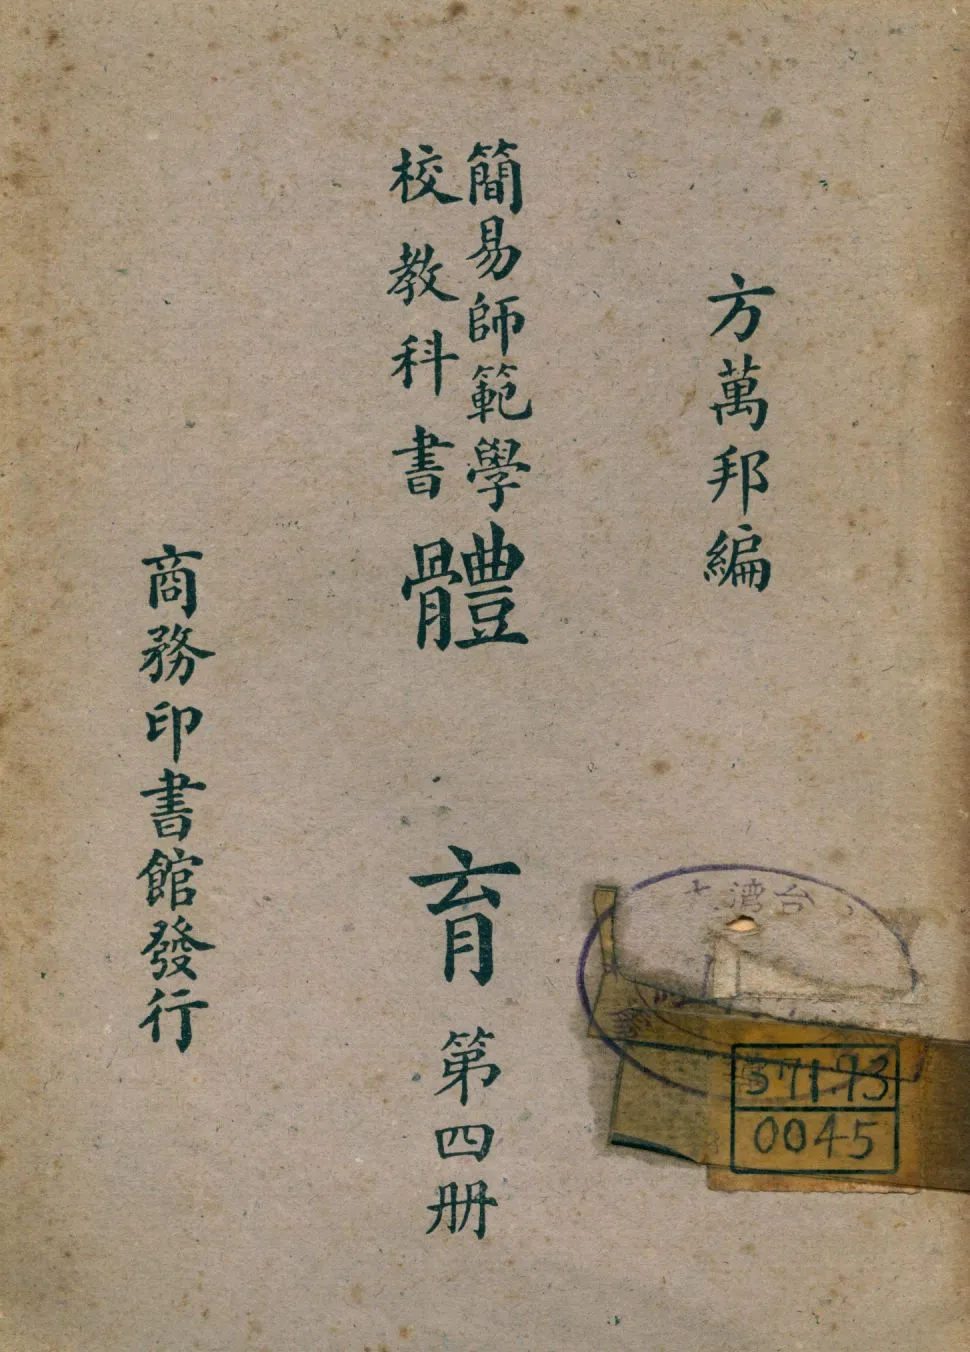 方萬邦編
簡易師範學
校教科書
體育第四册
商務印書館發行
台灣
37193
0045